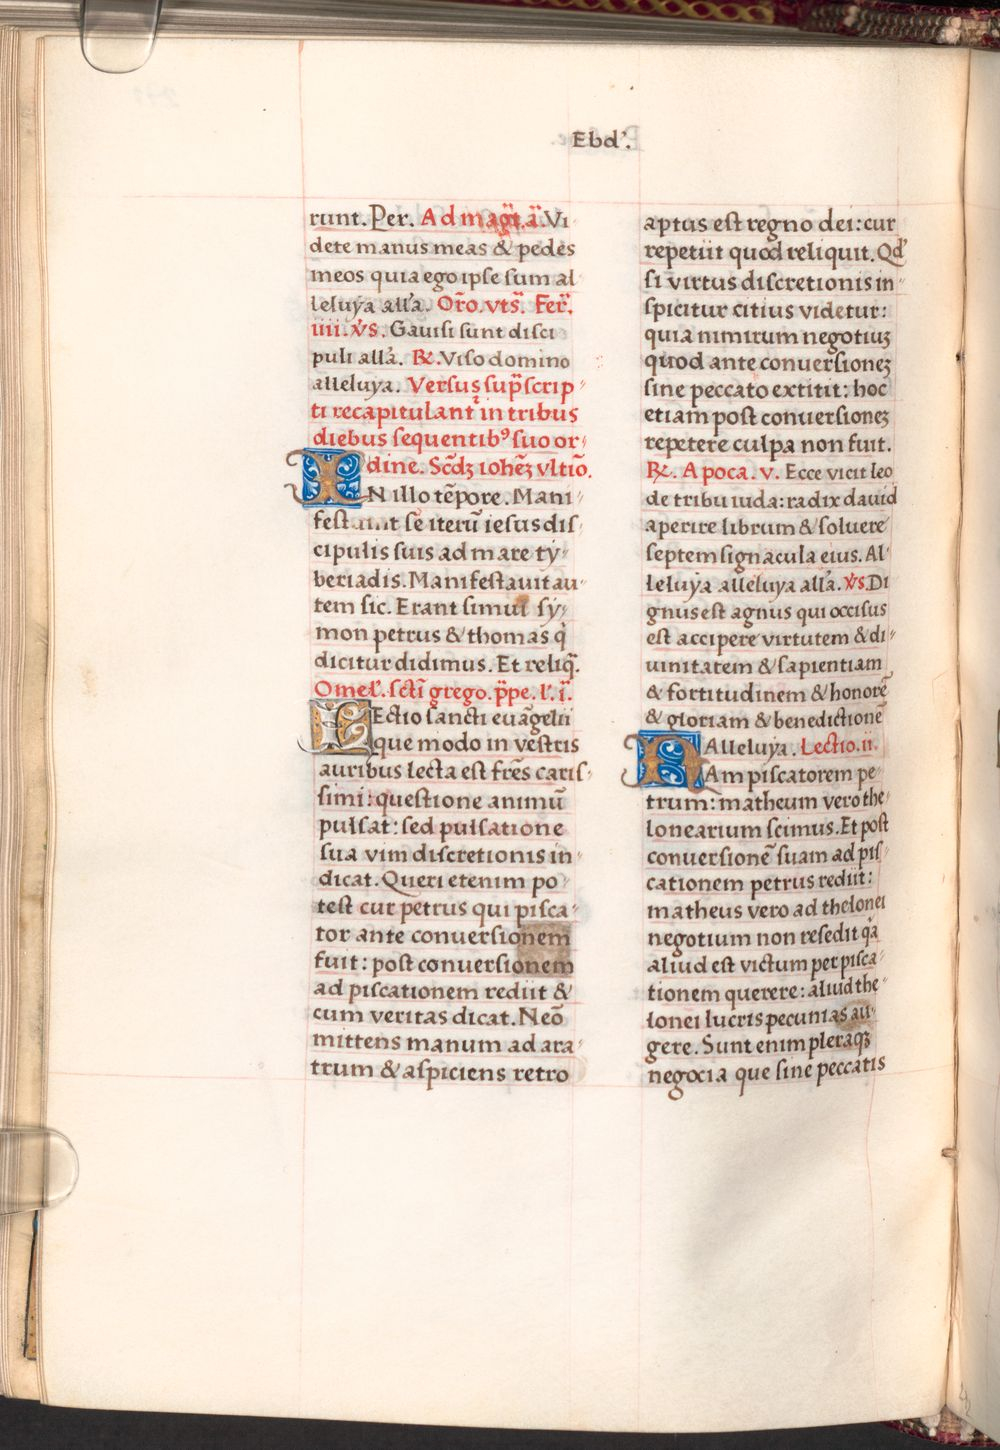 Ebd'.
runt. Per. Ad magt̄. ā. Vi
dete manus meas & pedes
meos quia ego ipse sum al
leluÿa all'a. Or̄o. vts̄. Fer̄.
iiii. v̄s. Gauisi sunt disci
puli all'a. ℞. Viso domino
alleluÿa. Versus sup̄scrip-
ti recapitulant̄ in tribus
diebus sequentibꝰ suo or-
dine. Sc̄dꝫ iohēꝫ vltīo.
IN illo tēpore. Mani-
festauit se iterū iesus dis-
cipulis suis ad mare tÿ-
beriadis. Manifestauit au-
tem sic. Erant simul sÿ-
mon petrus & thomas q̇
dicitur didimus. Et reliq̄.
Omel'. sctī grego. p̄pe. l'. ī.
LEctio sancti euāgelii
que modo in vestris
auribus lecta est frēs caris-
simi: questione animū
pulsat: sed pulsatione
sua vim discretionis in-
dicat. Queri etenim po-
test cur petrus qui pisca-
tor ante conuersionem
fuit: post conuersionem
ad piscationem rediit &
cum veritas dicat. Neō
mittens manum ad ara-
trum & aspiciens retro
aptus est regno dei: cur
repetiit quod reliquit. Qd'
si virtus discretionis in-
spicitur citius videtur:
quia nimirum negotiuꝫ
quod ante conuersioneꝫ
sine peccato extitit: hoc
etiam post conuersioneꝫ
repetere culpa non fuit.
℞. Apoca. v. Ecce vicit leo
de tribu iuda: radix dauid
aperire librum & soluere
septem signacula eius. Al-
leluÿa alleluya all'a. v̄s. Di
gnus est agnus qui occisus
est accipere virtutem & di-
uinitatem & sapientiam
& fortitudinem & honorē
& gloriam & benedictionē
Alleluÿa. Lectio. ii.
NAm piscatorem pe-
trum: matheum vero the-
lonearium scimus. Et post
conuersionē suam ad pis-
cationem petrus rediit:
matheus vero ad thelonei
negotium non resedit q̇a
aliud est victum per pisca-
tionem querere: aliud the-
lonei lucris pecunias au-
gere. Sunt enim pleraqꝫ
negocia que sine peccatis